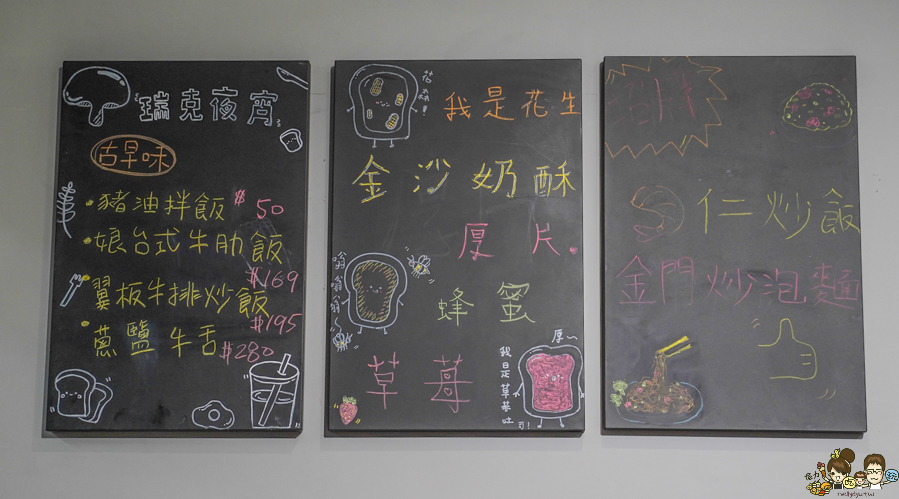 瑞克夜宵
古早味
豬油拌飯 $50
娘台式牛肋飯
$169
翼板牛排炒飯
$195
蔥鹽牛舌
$280
我是花生
金沙奶酥
厚片
嗡嗡嗡
蜂蜜
草莓
厚~
我是草莓吐司
仁炒飯
金門炒泡麵